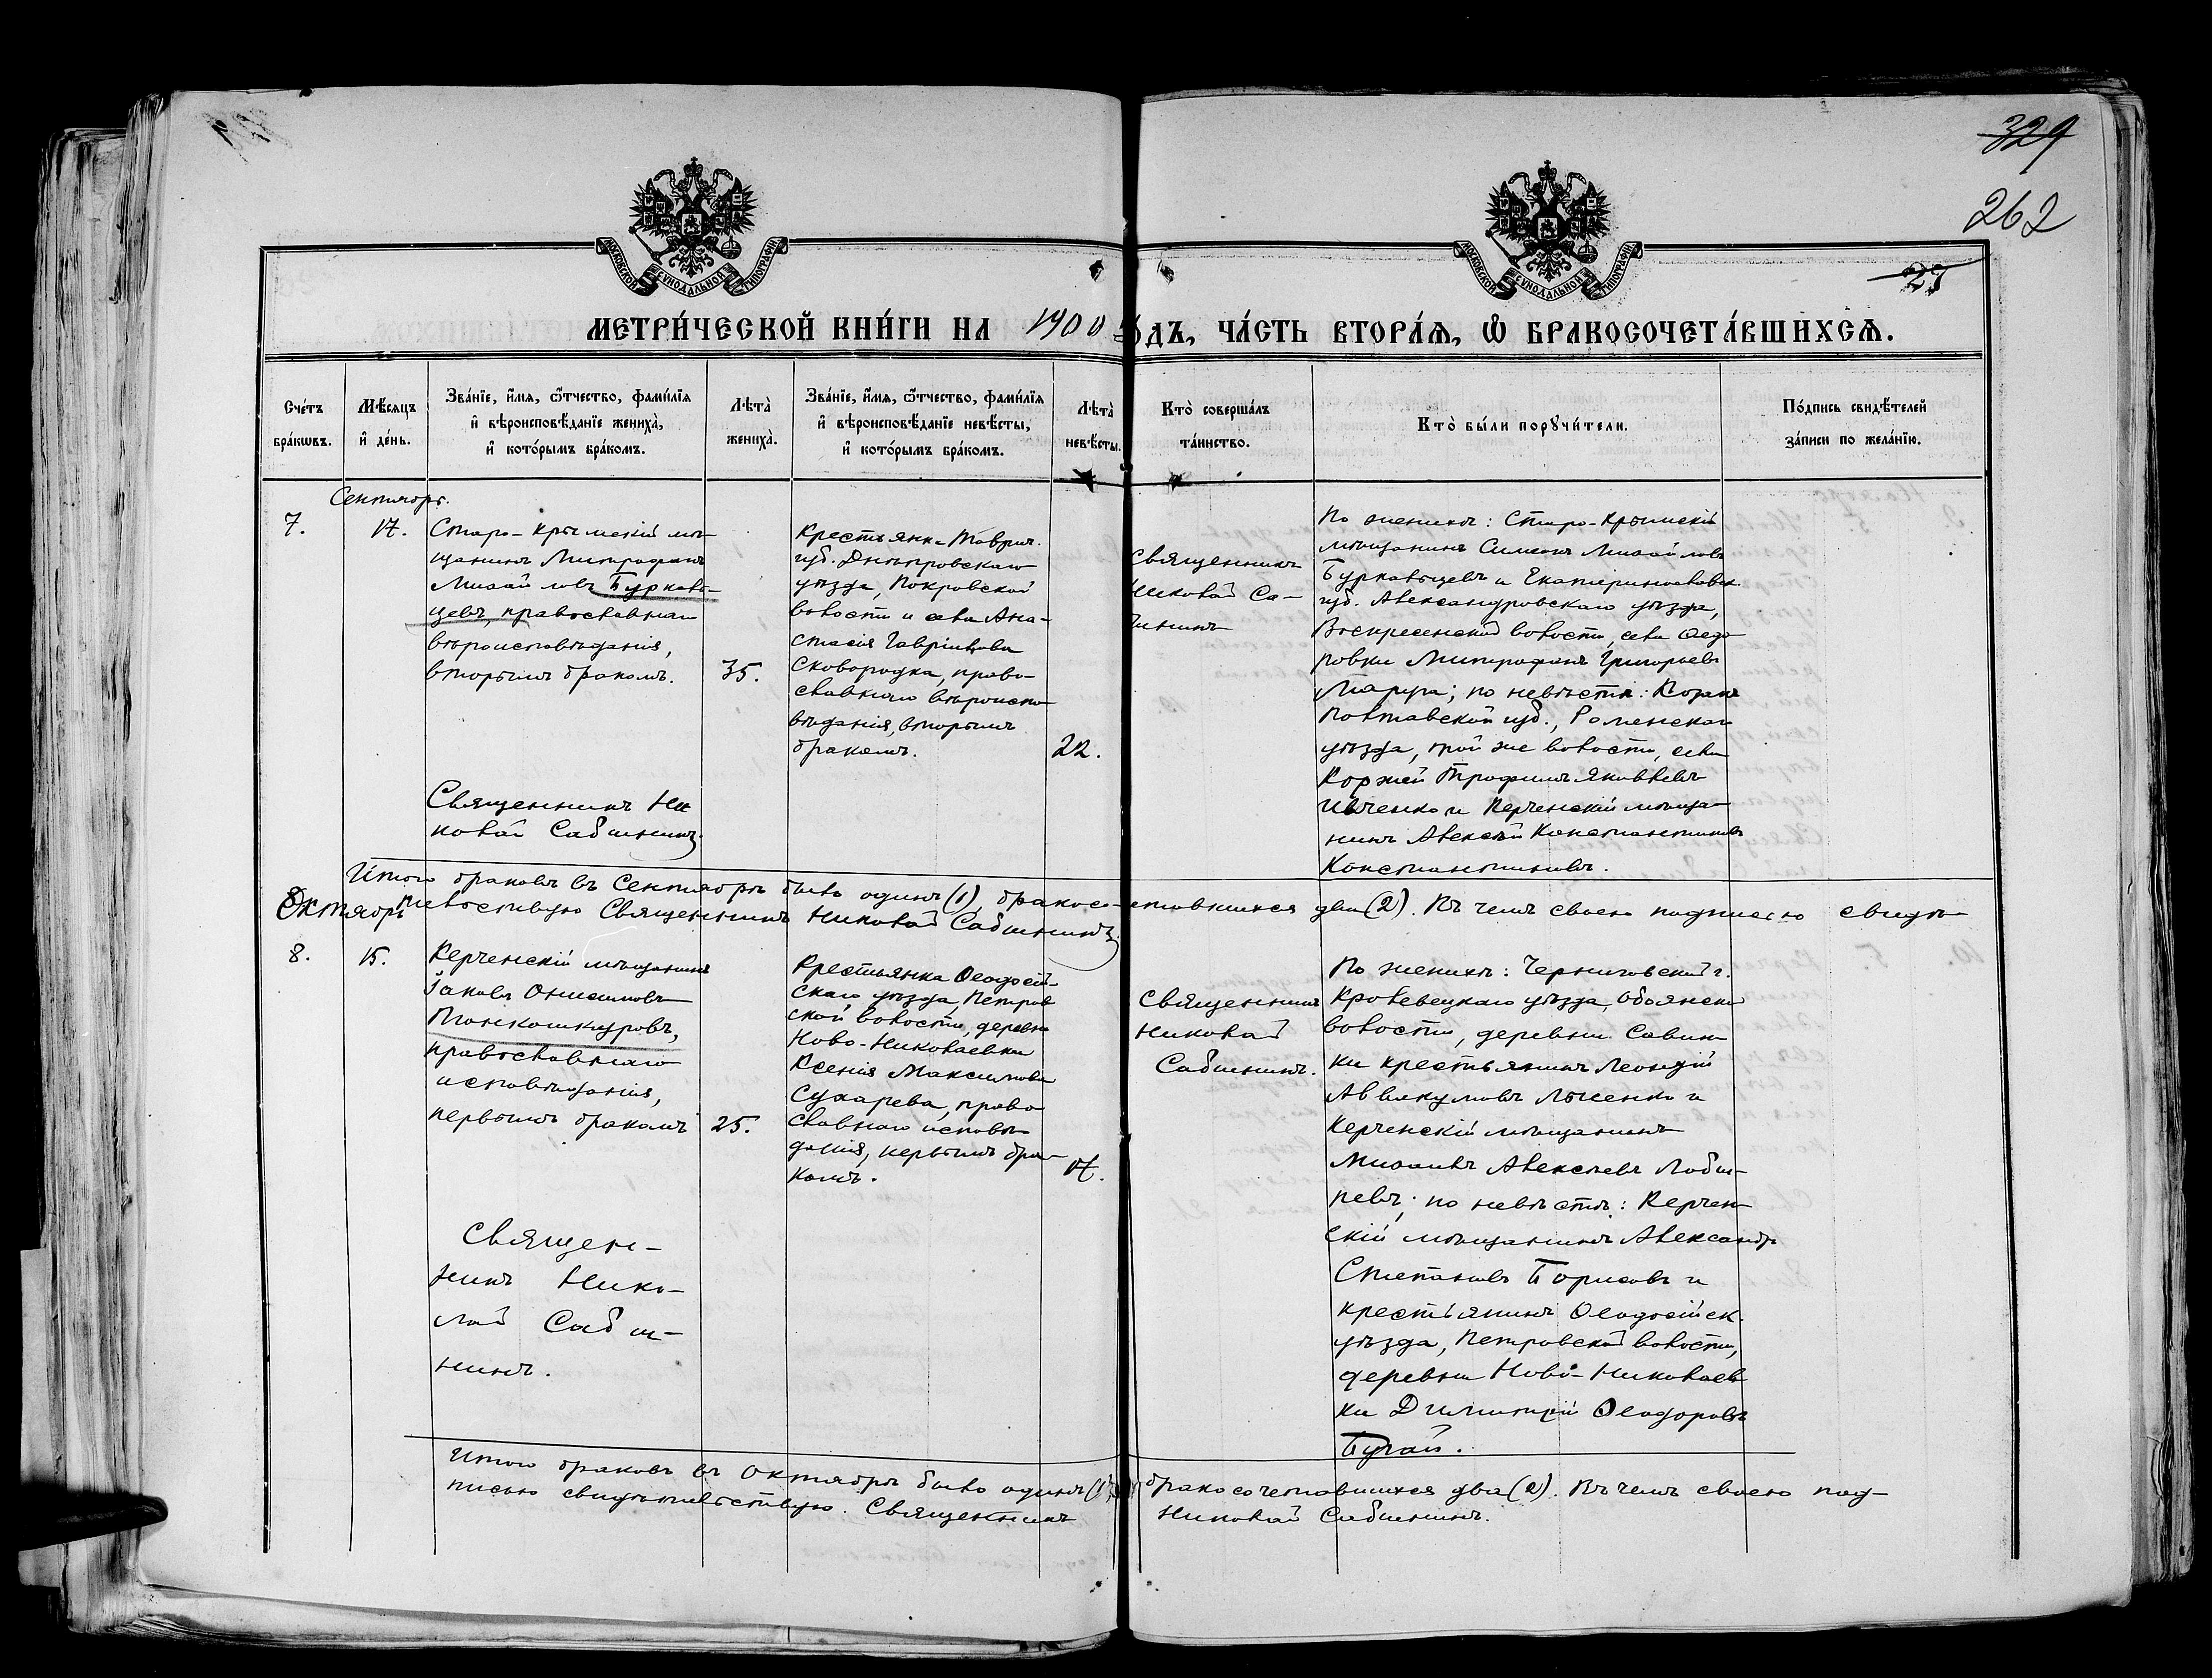 329
262
29
МОСКОВСКОЙ СѴНОДАЛЬНОЙ ТИПОГРАФІИ
МОСКОВСКОЙ СѴНОДАЛЬНОЙ ТИПОГРАФІИ
МЕТРИ́ЧЕСКОЙ КНИ́ГИ НА 1900 ГО́ДЪ, ЧА́СТЬ ВТОРА́Ѧ, Ѿ БРАКОСОЧЕТА́ВШИХСѦ.
Сче́тъ
бра́кѡвъ.
Мѣ́сяцъ
и҆ де́нь.
Зва́нїе, и҆́мѧ, ѻ҆́тчество, фами́лїѧ
и҆ вѣроисповѣ́данїе жениха̀,
и҆ кото́рымъ бра́комъ.
Лѣта̀
жениха̀.
Зва́нїе, и҆́мѧ, ѻ҆́тчество, фами́лїѧ
и҆ вѣроисповѣ́данїе невѣ́сты,
и҆ кото́рымъ бра́комъ.
Лѣта̀
невѣ́сты.
Кто̀ соверша́лъ
та́инство.
Кто̀ бы́ли порꙋчи́тели.
По́дпись свидѣ́телей
за́писи по жела́нїю.
Сентябрь.
7.
17.
Старо-Крымскій мѣ-
щанинъ Митрофанъ
Михайловъ Буркавъ-
цевъ, православнаго
вѣроисповѣданія,
вторымъ бракомъ.
35.
Священникъ Ни
колай Сабининъ.
Крестьянка Таврич.
губ. Днѣпровскаго
уѣзда, Покровской
волости и села Ана-
стасія Гавріилова
Сковородка, право-
славнаго вѣроиспо-
вѣданія, вторымъ
бракомъ.
22.
Священникъ
Николай Са-
бининъ
По женихѣ: Старо-Крымскій
мѣщанинъ Симеонъ Михайловъ
Буркавцевъ и Екатеринославск.
губ. Александровскаго уѣзда,
Воскресенской волости, села Ѳедо
ровки Митрофанъ Григорьевъ
по невѣстѣ: Козакъ
Полтавской губ., Роменскаго
уѣзда, той же волости, села
Коржей Трофимъ Яковлевъ
Ивченко и Керченскій мѣща-
нинъ Алексѣй Константиновъ
Константиновъ.
Итого браковъ въ Сентябрѣ было одинъ (1), бракосо-четавшихся два (2). Въ чемъ своею подписью свидѣ-
тельствую Священникъ Николай Сабининъ.
Октябрь
8.
15.
Керченскій мѣщанинъ
Іаковъ Онисимовъ
Тонкошкуровъ,
православнаго
исповѣданія,
первымъ бракомъ
25.
Священ-
никъ Нико-
лай Саби-
нинъ.
Крестьянка Ѳеодосій-
скаго уѣзда, Петров
ской волости, деревни
Ново-Николаевки
Ксенія Максимова
Сухарева, право
славнаго исповѣ-
данія, первымъ бра-
комъ.
17.
Священникъ
Николай
Сабининъ.
По женихѣ: Черниговской г.
Кролевецкаго уѣзда,
волости, деревни Савин-
ки крестьянинъ Леонтій
Аввакумовъ Лысенко и
Керченскій мѣщанинъ
Михаилъ Алексѣевъ
по невѣстѣ: Керчен-
скій мѣщанинъ Александръ
Степановъ Борисовъ и
крестьянинъ Ѳеодосійск.
уѣзда, Петровской волости,
деревни Ново-Николаев
ки Димитрій Ѳеодоровъ
Бугай.
Итого браковъ въ Октябрѣ было одинъ (1), бракосочетавшихся два (2). Въ чемъ своею под-
писью свидѣтельствую. Священникъ Николай Сабининъ.